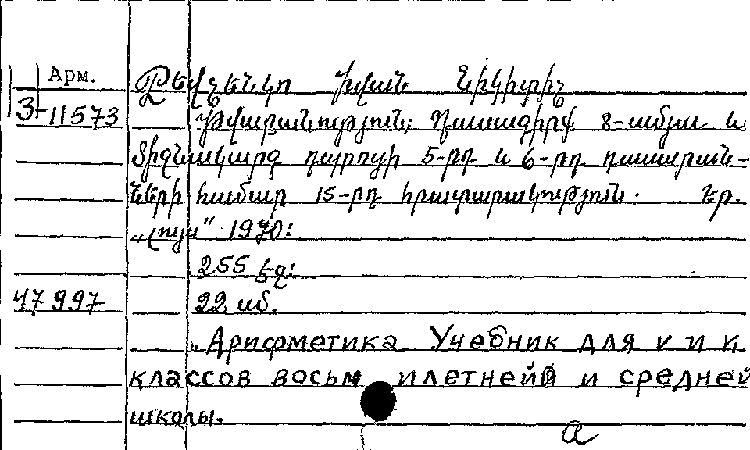 Арм.
Շևչենկո Իվան Նիկիտիչ
3-11573
Թվաբանություն: Դասագիրք 8-ամյա և
միջնակարգ դպրոցի 5-րդ և 6-րդ դասարան-
ների համար 15-րդ հրատարակություն. Եր.
„Լույս" 1970:
255 էջ:
47997 22 սմ.
„Арифметика Учебник для V и
классов восьмилетней и средней
школы.
а